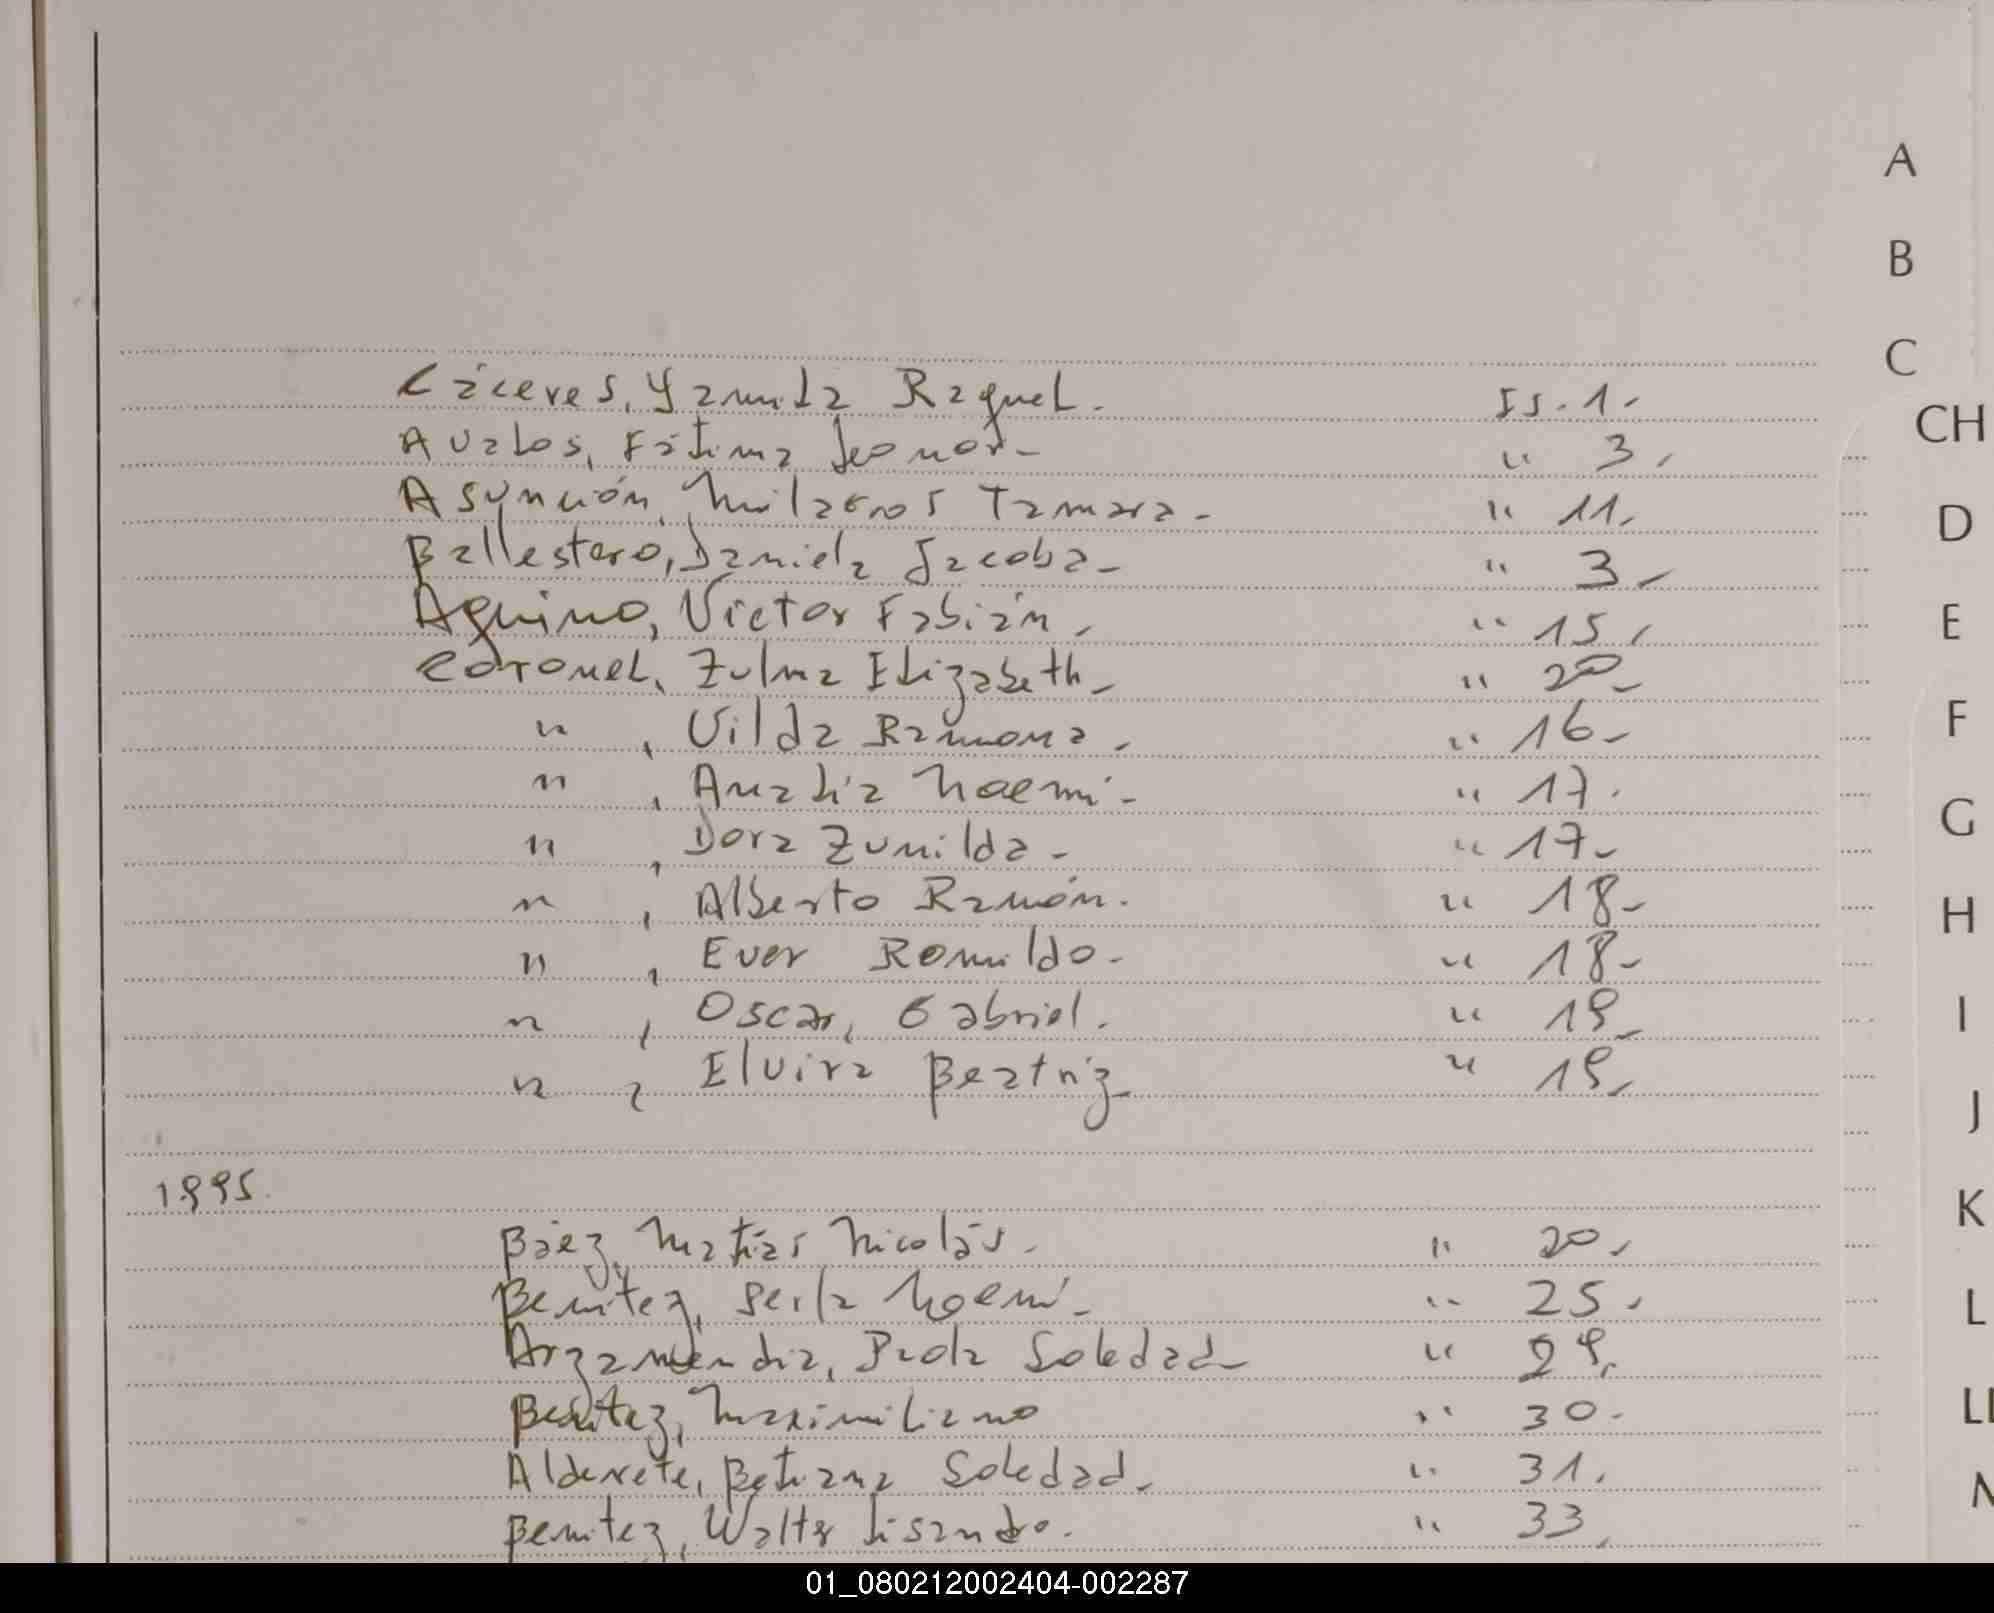 Cáceres, Yamila Raquel. Fs. 1.
Avalos, Fátima Leonor. " 3.
Asunción, Milagros Tamara. " 11.
Ballestero, Daniela Jacoba. " 3.
Aquino, Victor Fabián. " 15.
Coronel, Zulma Elizabeth. " 20.
" , Vilda Ramona. " 16.
" , Analia Noemi. " 17.
" , Dora Zunilda. " 17.
" , Alberto Ramón. " 18.
" , Ever Romildo. " 18.
" , Oscar, Gabriel. " 19.
" , Elvira Beatriz. " 19.
1995.
Báez, Matías Nicolás. " 20.
Benitez, Perla Noemi. " 25.
Arzamendia, Paola Soledad. " 29.
Benitez, Maximiliano " 30.
Alderete, Betiana Soledad. " 31.
Benitez, Walter Lisandro. " 33.
A
B
C
CH
D
E
F
G
H
I
J
K
L
LL
01_080212002404-002287